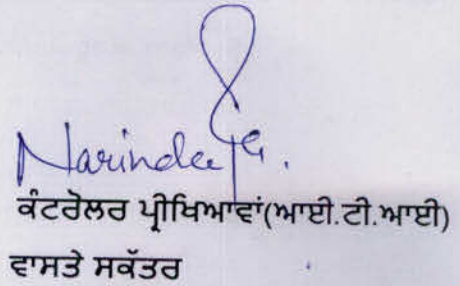 Narinder
ਕੰਟਰੋਲਰ ਪ੍ਰੀਖਿਆਵਾਂ(ਆਈ.ਟੀ.ਆਈ)
ਵਾਸਤੇ ਸਕੱਤਰ